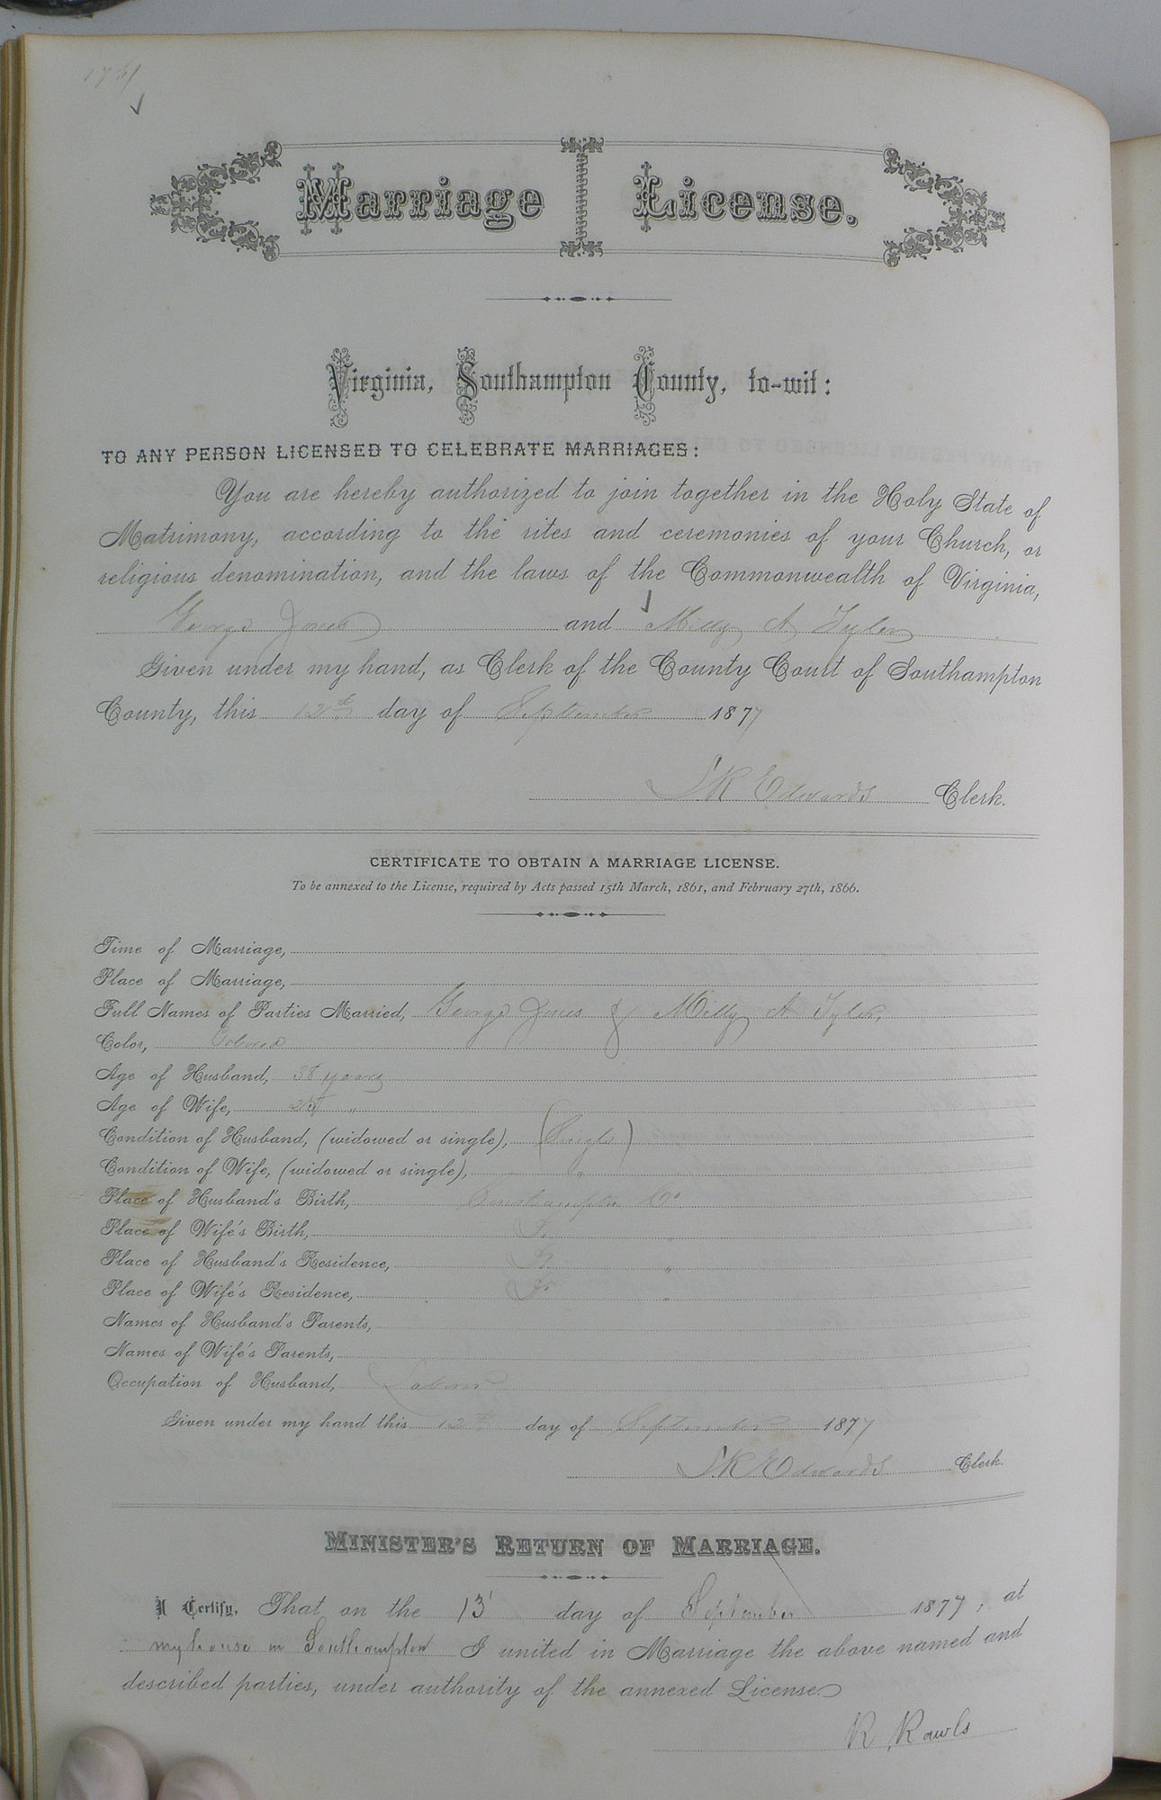 Marriage License.
Virginia, Southampton County, to-wit:
TO ANY PERSON LICENSED TO CELEBRATE MARRIAGES:
You are hereby authorized to join together in the Holy State of
Matrimony, according to the rites and ceremonies of your Church, or
religious denomination, and the laws of the Commonwealth of Virginia,
George Jones and Milly A Tyler
Given under my hand, as Clerk of the County Court of Southampton
County, this 12th day of September 1877
Edwards Clerk.
CERTIFICATE TO OBTAIN A MARRIAGE LICENSE.
To be annexed to the License, required by Acts passed 15th March, 1861, and February 27th, 1866.
Time of Marriage,
Place of Marriage,
Full Names of Parties Married, George Jones & Milly A Tyler
Color, Colored
Age of Husband, 38 years
Age of Wife, "
Condition of Husband, (widowed or single), (Single)
Condition of Wife, (widowed or single), "
Place of Husband's Birth, Southampton Co.
Place of Wife's Birth, "
Place of Husband's Residence, "
Place of Wife's Residence, "
Names of Husband's Parents,
Names of Wife's Parents,
Occupation of Husband,
Given under my hand this 12th day of September 1877
Edwards Clerk.
MINISTER'S RETURN OF MARRIAGE.
I Certify, That on the 13 day of September 1877, at
my house in Southampton I united in Marriage the above named and
described parties, under authority of the annexed License
R Rawls